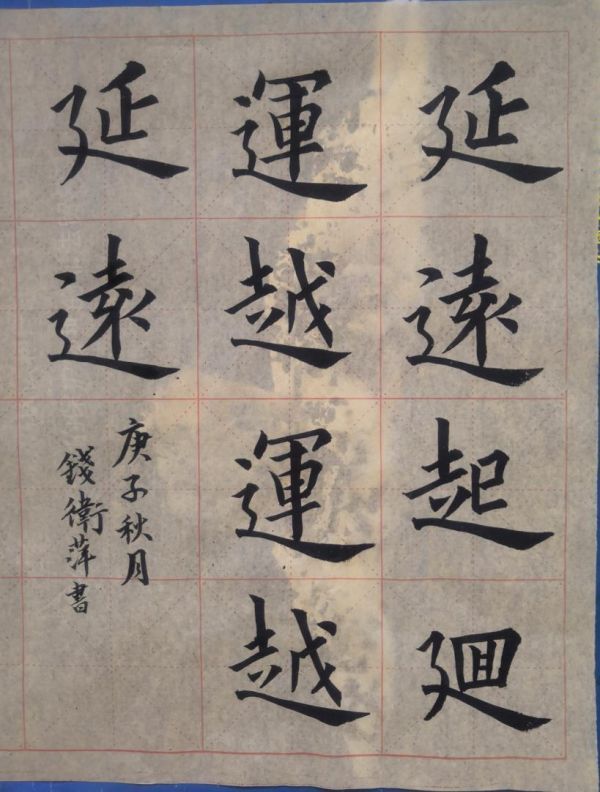 延遠起廻
運越運越
延遠
庚子秋月
錢衛萍書